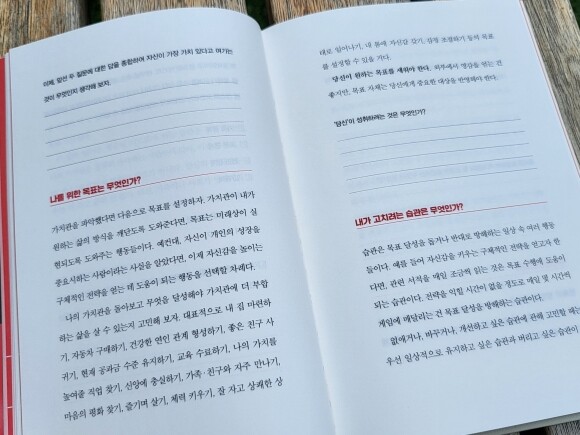 이제, 앞선 두 질문에 대한 답을 종합하여 자신이 가장 가치 있다고 여기는
것이 무엇인지 생각해 보자.
나를 위한 목표는 무엇인가?
가치관을 파악했다면 다음으로 목표를 설정하자. 가치관이 내가
원하는 삶의 방식을 깨닫도록 도와준다면, 목표는 미래상이 실
현되도록 도와주는 행동들이다. 예컨대, 자신이 개인의 성장을
중요시하는 사람이라는 사실을 알았다면, 이제 자신감을 높이는
구체적인 전략을 얻는 데 도움이 되는 행동을 선택할 차례다.
나의 가치관을 돌아보고 무엇을 달성해야 가치관에 더 부합
하는 삶을 살 수 있는지 고민해 보자. 대표적으로 내 집 마련하
기, 자동차 구매하기, 건강한 연인 관계 형성하기, 좋은 친구 사
귀기, 현재 공과금 수준 유지하기, 교육 수료하기, 나의 가치를
높여줄 직업 찾기, 신앙에 충실하기, 가족·친구와 자주 만나기,
마음의 평화 찾기, 즐기며 살기, 체력 키우기, 잘 자고 상쾌한 상
태로 일어나기, 내 몸에 자신감 갖기, 감정 조절하기 등의 목표
를 설정할 수 있을 거다.
당신이 원하는 목표를 세워야 한다. 외부에서 영감을 얻는 건
좋지만, 목표 자체는 당신에게 중요한 대상을 반영해야 한다.
'당신'이 성취하려는 것은 무엇인가?
내가 고치려는 습관은 무엇인가?
습관은 목표 달성을 돕거나 반대로 방해하는 일상 속 여러 행동
들이다. 예를 들어 자신감을 키우는 구체적인 전략을 얻고자 한
다면, 관련 서적을 매일 조금씩 읽는 것은 목표 수행에 도움이
되는 습관이다. 전략을 익힐 시간이 없을 정도로 매일 몇 시간씩
게임에 매달리는 건 목표 달성을 방해하는 습관이다.
없애거나, 바꾸거나, 개선하고 싶은 습관에 관해 고민할 때는
우선 일상적으로 유지하고 싶은 습관과 버리고 싶은 습관이